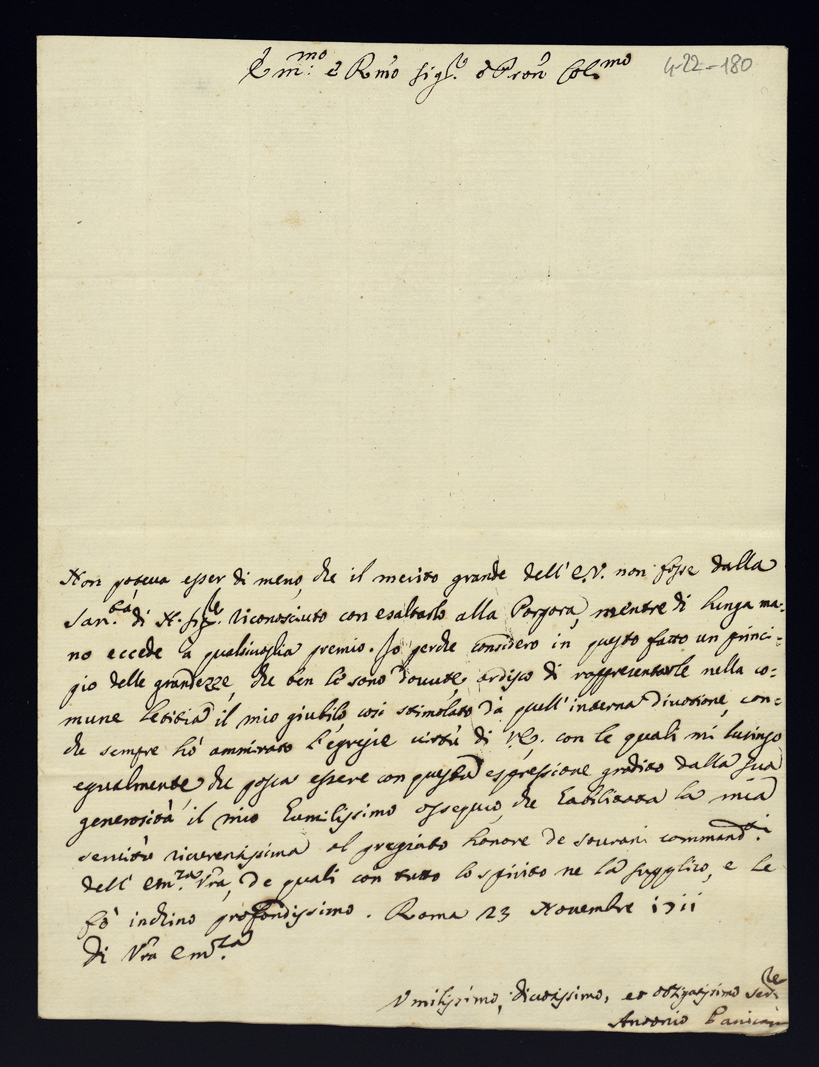 Em:mo e Rmo Sig.re e Pron Col.mo
4-22-180
Non poteva esser di meno, che il merito grande dell' E.V. non fosse dalla
San.tà di N. Sig.re riconosciuto con esaltarlo alla Porpora, mentre di lunga ma:
no eccede à qualsivoglia premio. Io perche considero in questo fatto un princi:
pio delle grandezze, che ben le sono dovute, ardisco di rappresentarle nella co:
mune letitia il mio giubilo così stimolato dà quell' interna divotione, con:
che sempre hò ammirato l'egregie virtù di V.E. con le quali mi lusingo
egualmente che possa essere con questa espressione gradito dalla sua
generosità il mio humilissimo ossequio che habilitata la mia
servitù riverentissima al pregiato honore de sourani command.ti
dell' Em.za Vra, de quali con tutto lo spirito ne la supplico, e le
fò inchino profondissimo. Roma 23 Novembre 1711
Di Vra Em.za
Umilissimo, divotissimo, et obligatissimo Ser.re
Antonio